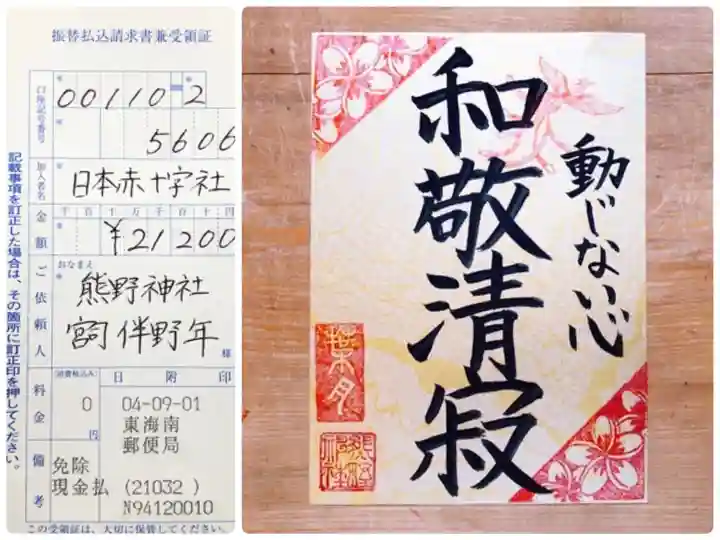 振替払込請求書兼受領証
口座記号番号
00110-2
5606
加入者名
日本赤十字社
金額
千百十万千百十円
¥21200
ご依頼人
おなまえ
熊野神社
宮司 伴野年
様
料金
(消費税込み)
0
円
日附印
04-09-01
東海南
郵便局
備考
免除
現金払 (21032 )
N94120010
記載事項を訂正した場合は、その箇所に訂正印を押してください。
この受領証は、大切に保管してください。
和敬清寂
動じない心
葉月